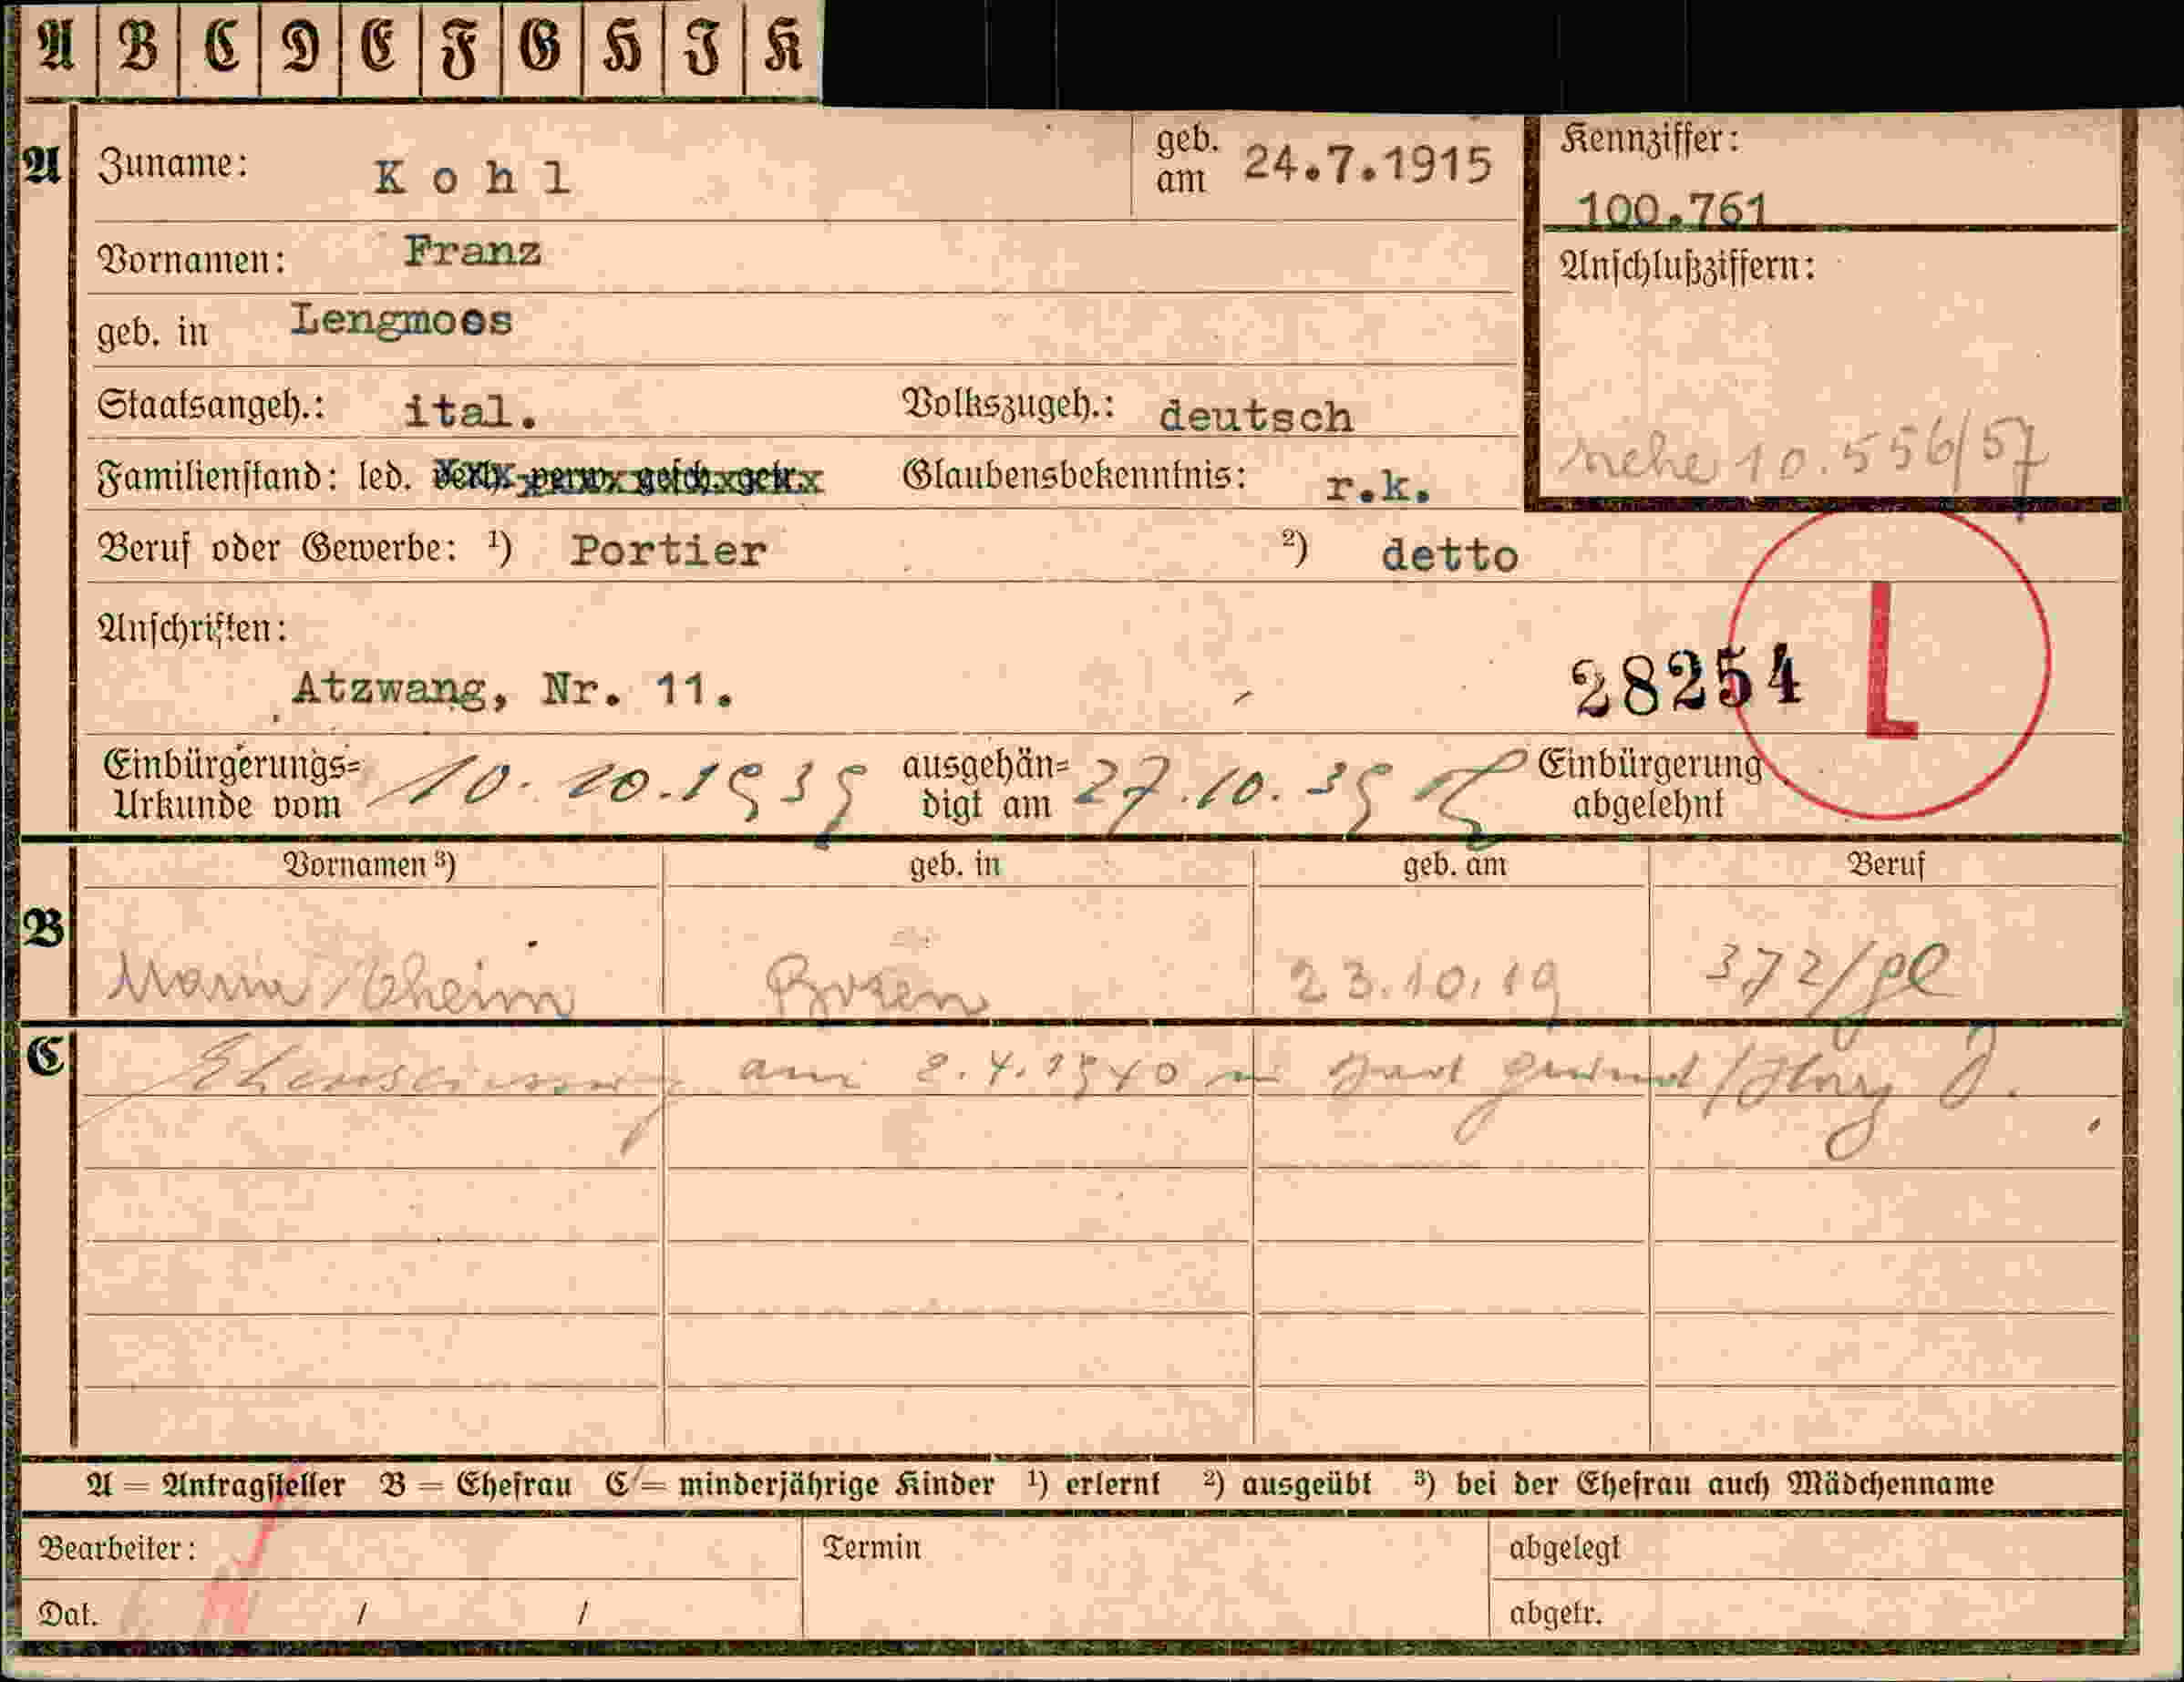 A B C D E F G H I K
A Zuname: Kohl geb. am 24.7.1915
Kennziffer: 100.761
Vornamen: Franz
Anschlußziffern:
geb. in Lengmoos
Staatsangeh.: ital. Volkszugeh.: deutsch
siehe 10.556/57
Familienstand: led. verh. verw. gesch. getr. Glaubensbekenntnis: r.k.
Beruf oder Gewerbe: ¹) Portier ²) detto
Anschriften:
Atzwang, Nr. 11. 28254 L
Einbürgerungs= Urkunde vom 10.10.1939 ausgehän= digt am 27.10.39 Einbürgerung abgelehnt
Vornamen ³) geb. in geb. am Beruf
B Maria Bozen 23.10.19 372/
C am 8.4.1940 in
A = Antragsteller B = Ehefrau C = minderjährige Kinder ¹) erlernt ²) ausgeübt ³) bei der Ehefrau auch Mädchenname
Bearbeiter: Termin abgelegt
Dat. / / abgetr.